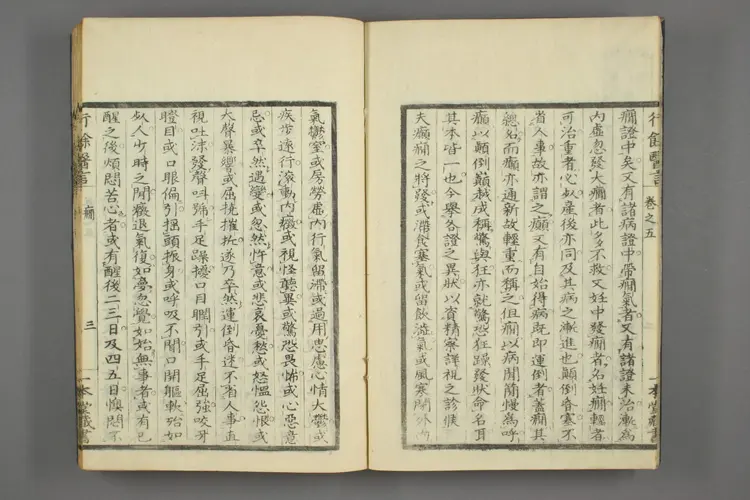 行餘醫言 卷之五 一本堂藏書
癇證中矣又有諸病證中帶癇氣者又有諸證未治漸為
内虛忽發大癇者此多不救又妊中發癇者名妊癇輕者
可治重者必似產後亦同及其病之漸進也顛倒昏塞不
省人事故亦謂之癲又有自始得病既即運倒者蓋癇其
總名而癲亦通新故輕重而稱之但癇以病間簡慢為呼
癲以顛倒巔越成稱驚與狂亦就驚恐狂躁發狀命名耳
其本皆一也今舉各證之異狀以資精察詳視之診候
夫癲癇之將發或滯食塞氣或留飲澁氣或風寒閉外
氣鬱室或房勞虛内行氣留滯或過用思慮心情大鬱或
疾步遠行滾動内癥或視怪聽異或驚恐畏怖或心惡意
忌或卒然遇變或忽然忤意或悲哀憂愁或怒慍怨恨或
大聲暴響或屈挽摧折遂乃卒然運倒昏迷不省人事直
視吐沫發聲叫號手足躁擾口目瞤引或手足屈強咬牙
瞪目或口眼偏引搖頭振身或呼吸不開口開軀軟殆如
似人少時之間癥退氣復如夢忽覺如始無事者或有已
醒之後煩悶苦心者或有醒後二三日及四五日懊悶不
行餘醫言 癇 三 一本堂藏書